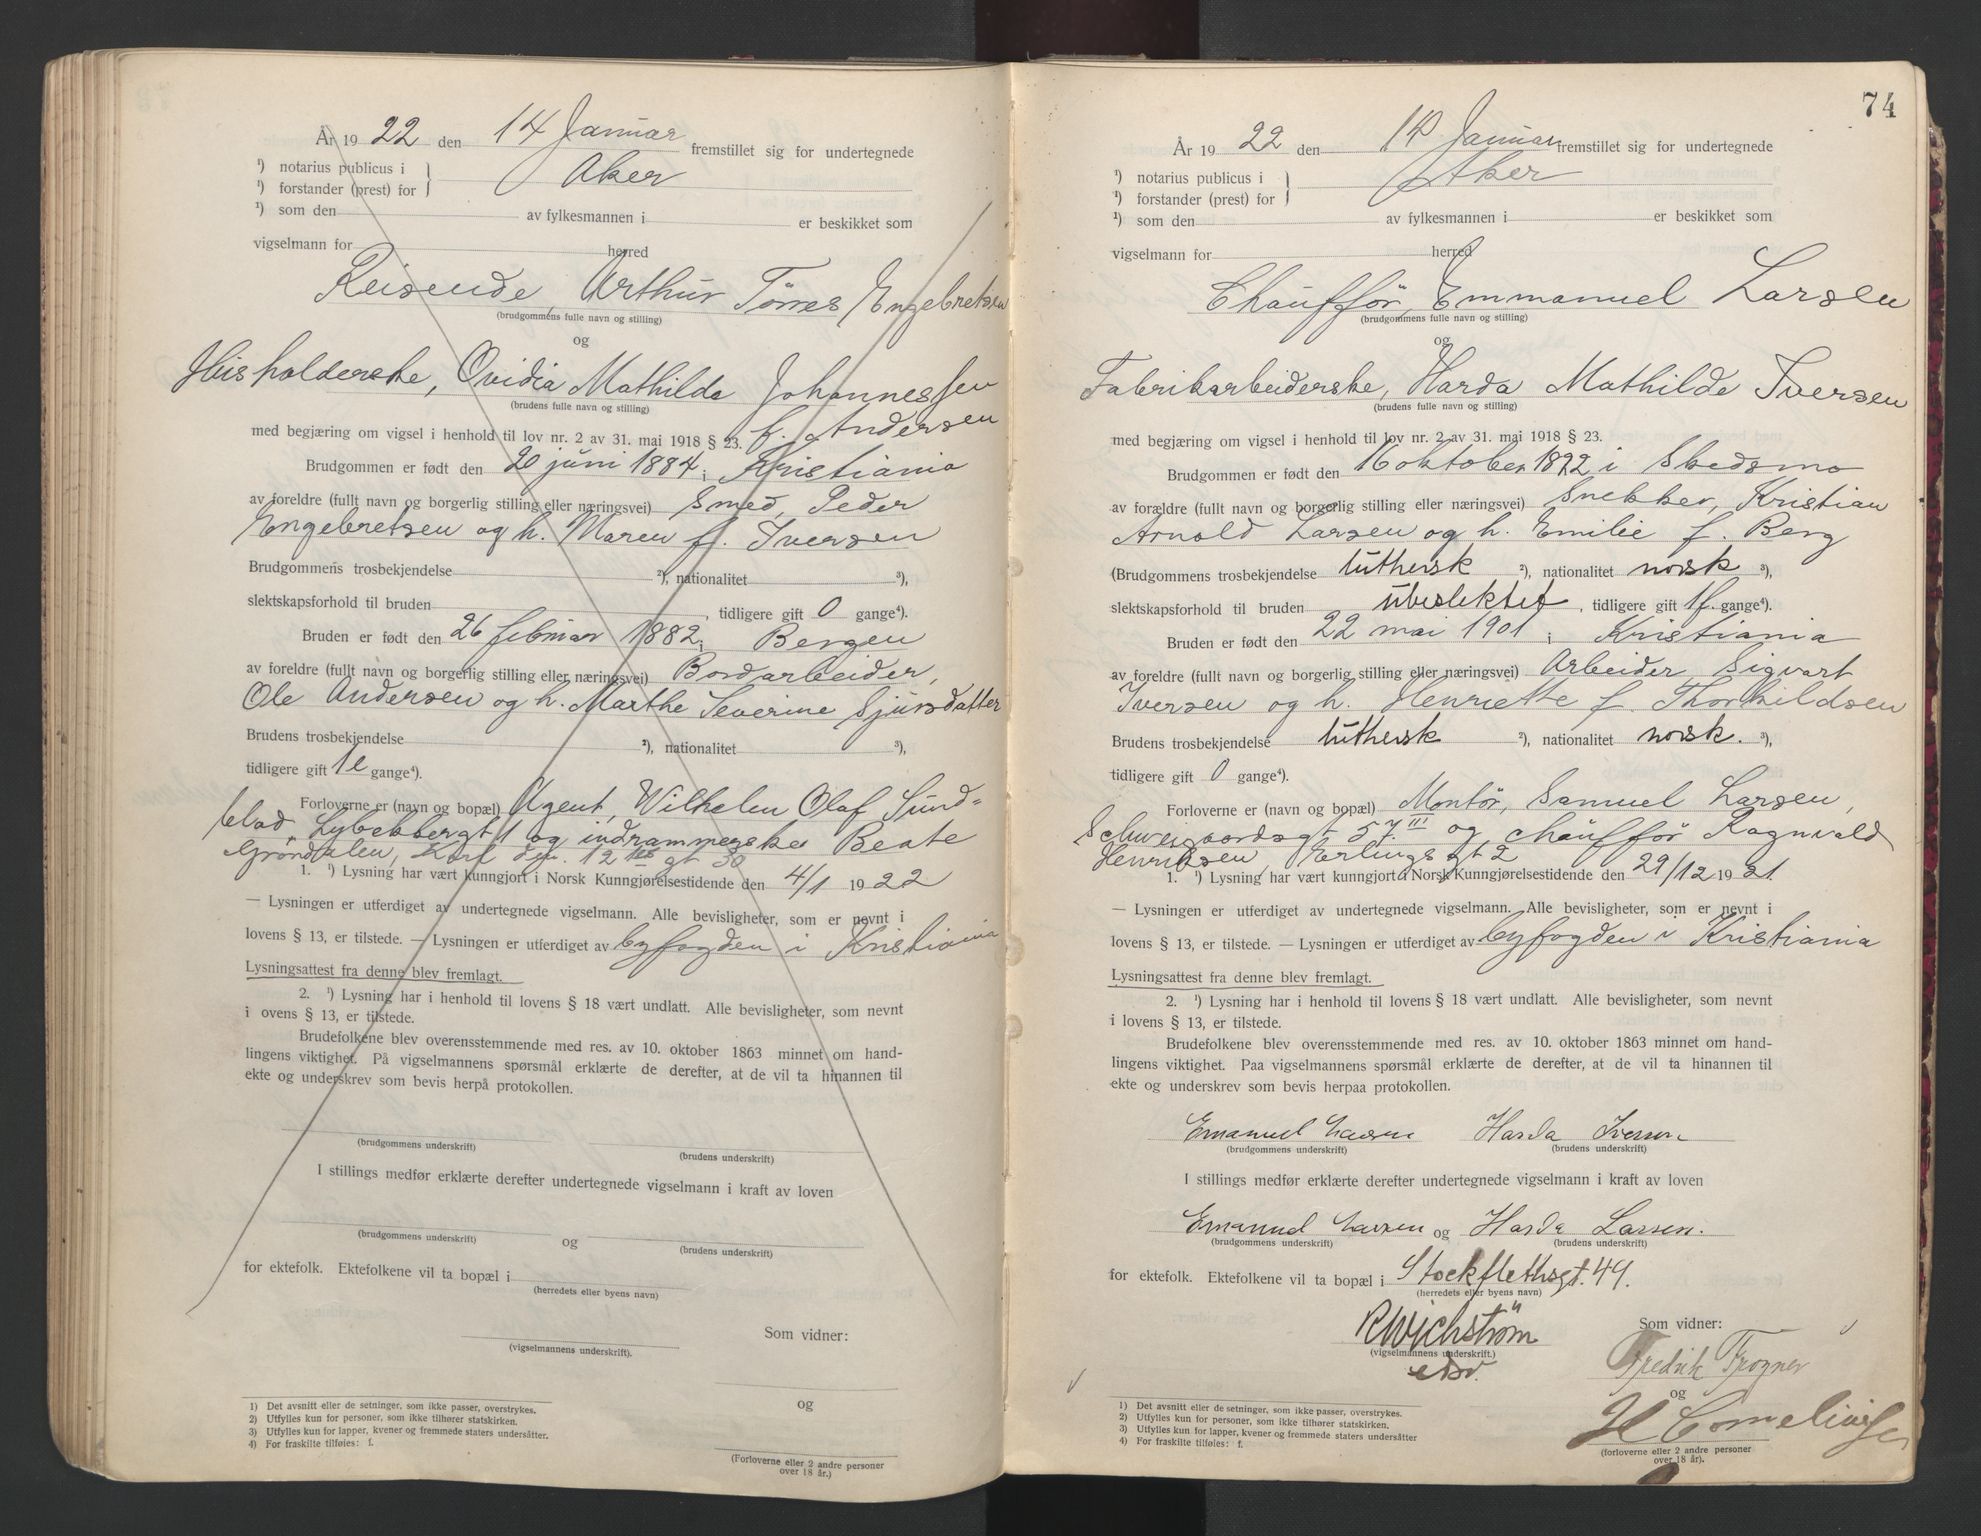 År 1922 den 14 Januar fremstillet sig for undertegnede
¹) notarius publicus i
¹) forstander (prest) for } Aker
¹) som den av fylkesmannen i er beskikket som
vigselmann for herred
Reisende, Arthur Tørres Engebretsen
(brudgommens fulle navn og stilling)
og
Husholderske, Ovidia Mathilde Johannessen
(brudens fulle navn og stilling)
f. Andersen
med begjæring om vigsel i henhold til lov nr. 2 av 31. mai 1918 § 23.
Brudgommen er født den 20 juni 1884 i Kristiania
av foreldre (fullt navn og borgerlig stilling eller næringsvei) Smed, Peder
Engebretsen og h. Maren f. Iversen
Brudgommens trosbekjendelse ²), nationalitet ³),
slektskapsforhold til bruden , tidligere gift 0 gange⁴).
Bruden er født den 26 februar 1882 i Bergen
av foreldre (fullt navn og borgerlig stilling eller næringsvei) Bordarbeider,
Ole Andersen og h. Marthe Severine Sjursdatter
Brudens trosbekjendelse ²), nationalitet ³),
tidligere gift 1e gange⁴).
Forloverne er (navn og bopæl) Agent, Wilhelm Olaf Sund=
blad, Lybekkergt 1 og indrammerske Beate
Grøndalen, Karl den 12tes gt 30
1. ¹) Lysning har vært kunngjort i Norsk Kunngjørelsestidende den 4/1 1922
— Lysningen er utferdiget av undertegnede vigselmann. Alle bevisligheter, som er nevnt i
lovens § 13, er tilstede. — Lysningen er utferdiget av byfogden i Kristiania
Lysningsattest fra denne blev fremlagt.
2. ¹) Lysning har i henhold til lovens § 18 vært undlatt. Alle bevisligheter, som nevnt
i ovens § 13, er tilstede.
Brudefolkene blev overensstemmende med res. av 10. oktober 1863 minnet om hand-
lingens viktighet. På vigselmannens spørsmål erklærte de derefter, at de vil ta hinannen til
ekte og underskrev som bevis herpå protokollen.
(brudgommens underskrift) (brudens underskrift)
I stillings medfør erklærte derefter undertegnede vigselmann i kraft av loven
og
(brudgommens underskrift) (brudens underskrift)
for ektefolk. Ektefolkene vil ta bopæl i
(herredets eller byens navn)
Som vidner:
(vigselmannens underskrift).
og
1) Det avsnitt eller de setninger, som ikke passer, overstrykes.
2) Utfylles kun for personer, som ikke tilhører statskirken.
3) Utfylles kun for lapper, kvener og fremmede staters undersåtter.
4) For fraskilte tilføies: f.
(Forloverne eller 2 andre personer
over 18 år.)
74
År 1922 den 14 Januar fremstillet sig for undertegnede
¹) notarius publicus i
¹) forstander (prest) for } Aker
¹) som den av fylkesmannen i er beskikket som
vigselmann for herred
Chauffør, Emmanuel Larsen
(brudgommens fulle navn og stilling)
og
Fabrikarbeiderske, Harda Mathilde Iversen
(brudens fulle navn og stilling)
med begjæring om vigsel i henhold til lov nr. 2 av 31. mai 1918 § 23.
Brudgommen er født den 16 oktober 1892 i Skedsmo
av forældre (fullt navn og borgerlig stilling eller næringsvei) Snekker, Kristian
Arnold Larsen og h. Emilie f. Berg
(Brudgommens trosbekjendelse luthersk ²), nationalitet norsk ³),
slektskapsforhold til bruden ubeslektet , tidligere gift 1f. gange⁴).
Bruden er født den 22 mai 1901 i Kristiania
av foreldre (fullt navn og borgerlig stilling eller næringsvei) Arbeider Sigvart
Iversen og h. Henriette f. Thorkildsen
Brudens trosbekjendelse luthersk ²), nationalitet norsk. ³),
tidligere gift 0 gange⁴).
Forloverne er (navn og bopæl) Montør, Samuel Larsen,
Schweigaardsgt 57 III og chauffør Ragnvald
Henriksen, Erlingsgt 2
1. ¹) Lysning har vært kunngjort i Norsk Kunngjørelsestidende den 29/12 1921.
— Lysningen er utferdiget av undertegnede vigselmann. Alle bevisligheter, som er nevnt i
lovens § 13, er tilstede. — Lysningen er utferdiget av byfogden i Kristiania
Lysningsattest fra denne blev fremlagt.
2. ¹) Lysning har i henhold til lovens § 18 vært undlatt. Alle bevisligheter, som nevnt
i lovens § 13, er tilstede.
Brudefolkene blev overensstemmende med res. av 10. oktober 1863 minnet om hand-
lingens viktighet. Paa vigselmannens spørsmål erklærte de derefter, at de vil ta hinannen til
ekte og underskrev som bevis herpaa protokollen.
Emanuel Larsen Harda Iversen
(brudgommens underskrift) (brudens underskrift)
I stillings medfør erklærte derefter undertegnede vigselmann i kraft av loven
Emanuel Larsen og Harda Larsen.
(brudgommens underskrift) (brudens underskrift)
for ektefolk. Ektefolkene vil ta bopæl i Stockflethsgt. 49.
(herredets eller byens navn)
RWichstrøm
Som vidner:
(vigselmannens underskrift.)
Fredrik Frogner
og
H Corneliussen
1) Det avsnitt eller de setninger, som ikke passer, overstrykes.
2) Utfylles kun for personer, som ikke tilhører statskirken.
3) Utfylles kun for lapper, kvener og fremmede staters undersåtter.
4) For fraskilte tilføies: f.
(forloverne eller 2 andre personer
over 18 år).